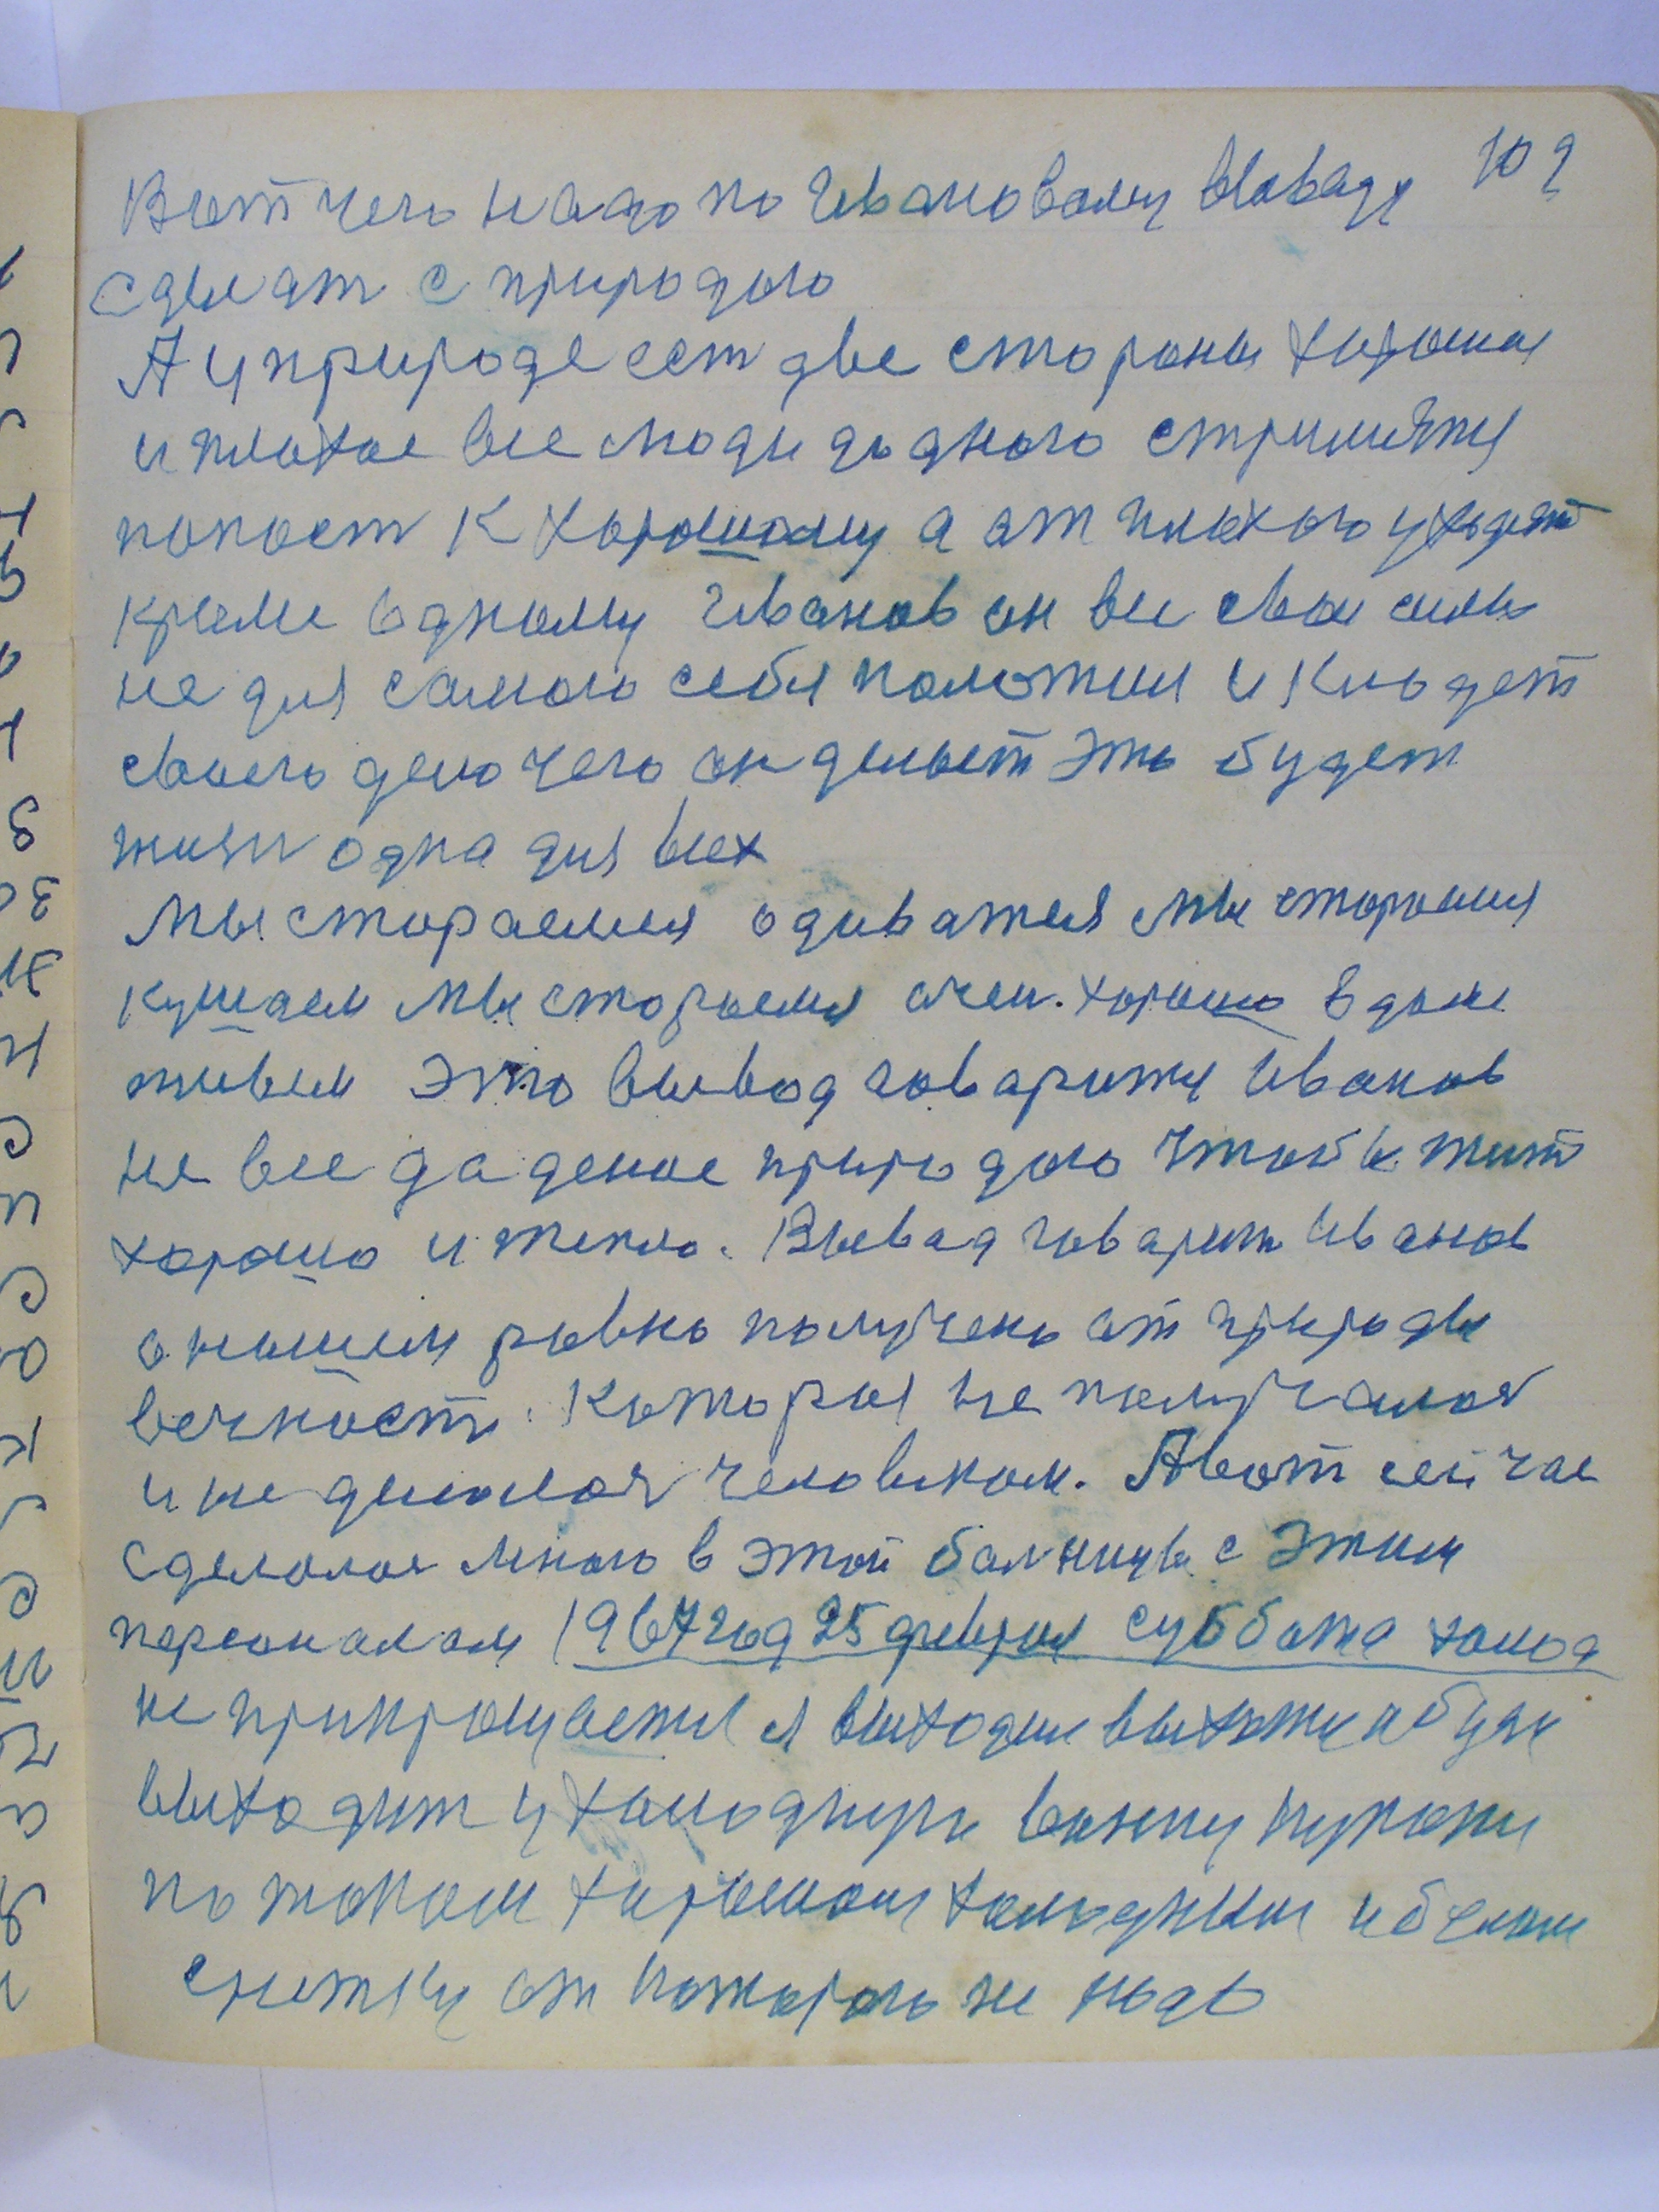 109
Вот чего надо по Ивановому вываду
сделат с природою
А у природе ест две стороны хорошая
и плохая все люди до дного стримятся
попаст к хорошому а от плохого уходят
кроме одному Иванов он все свои силы
не для самого себя положил и кладет
своего дело чего он делает это будет
жизн одна для всех
Мы стораемся одиватся мы стораемся
кушаем мы стораемся очен. хорошо в доме
живем Это вывод говоритя Иванов
не все даденое природою чтобы жит
хорошо и тепло. Вывад говорит Иванов
о нашем ровно получено от природы
вечности. Которая не получалоя
и не делалоя человеком. А вот сейчас
сделалос много в этой болнице с этим
персоналам 1967 год 25 февраля суббота холод
не прикращается я выходил выхожу и буду
выходит у холодную ванну
по такому хорошому холодному и белому
снежку от которого не